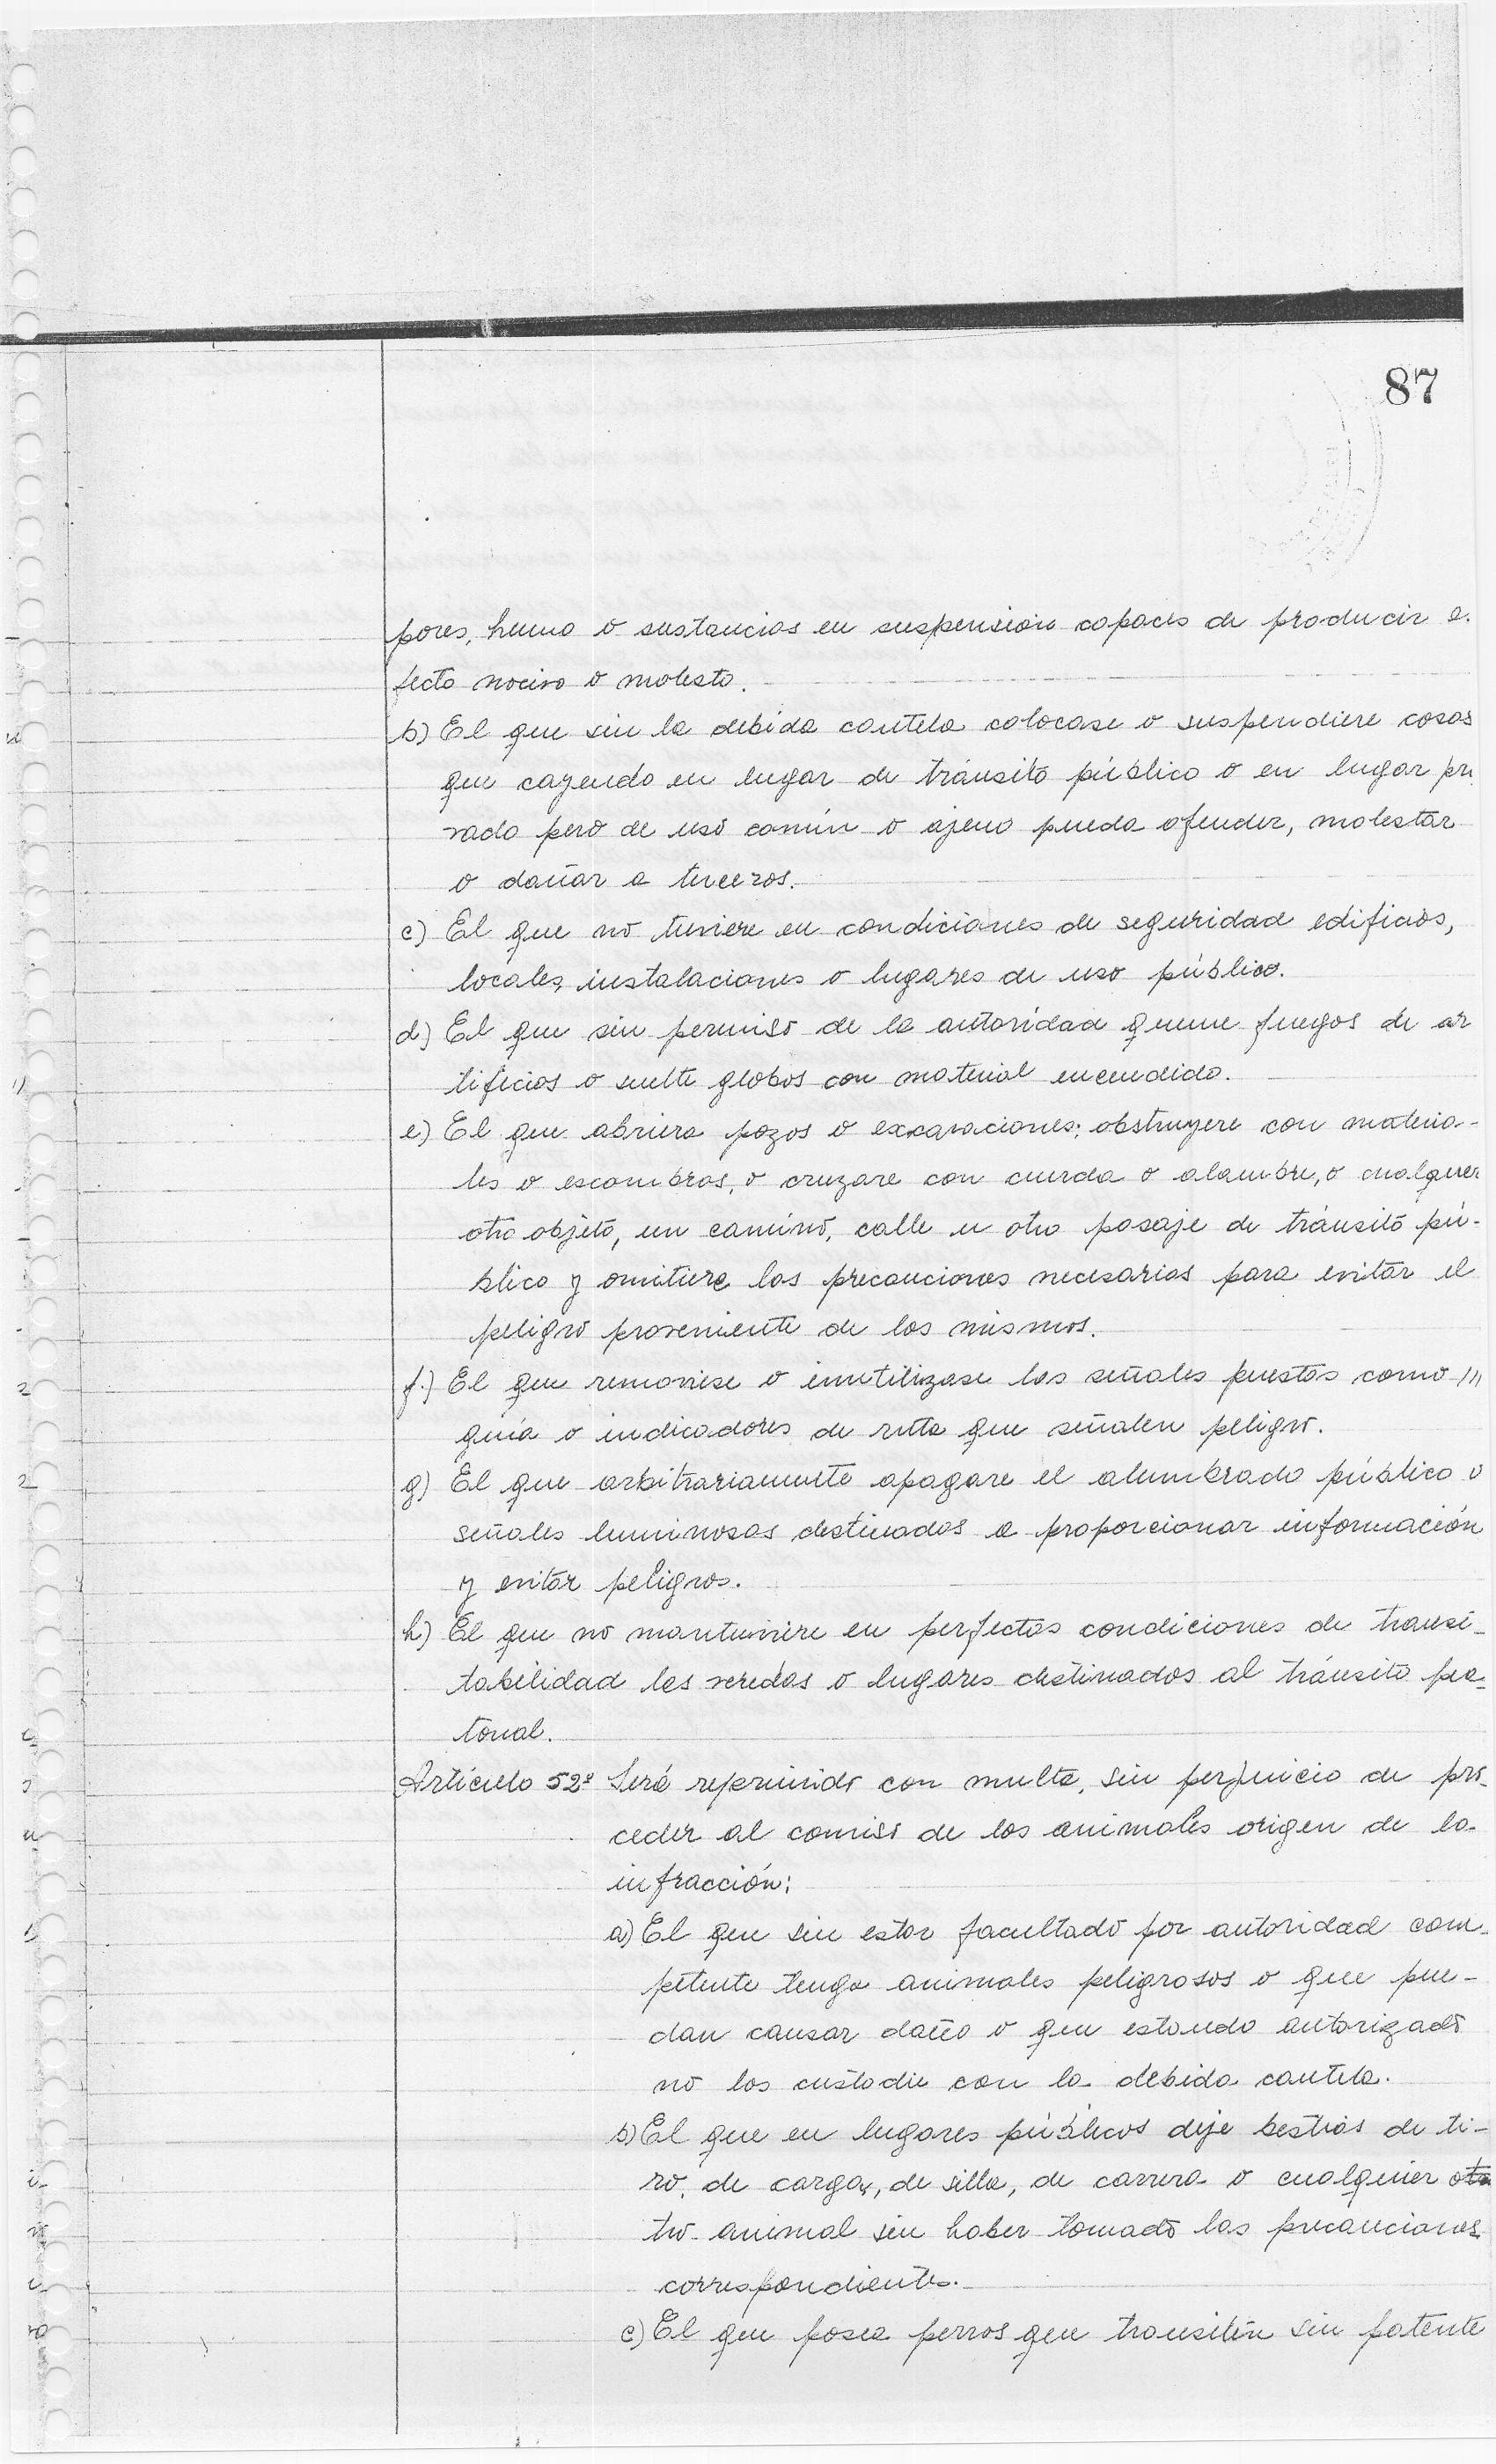 87
pores, humo o sustancias en suspensión capaces de producir e.
fecto nocivo o molesto.
b) El que sin la debida cautela colocase o suspendiere cosas
que cayendo en lugar de tránsito público o en lugar pri
vado pero de uso común o ajeno pueda ofender, molestar
o dañar a terceros.
c) El que no tuviere en condiciones de seguridad edificios,
locales, instalaciones o lugares de uso público.
d) El que sin permiso de la autoridad queme fuegos de ar
tificios o suelte globos con material encendido.
e) El que abriera pozos o excavaciones; obstruyere con materia-
les o escombros, o cruzare con cuerda o alambre, o cualquier
otro objeto, un camino, calle u otro pasaje de tránsito pú-
blico y omitiere las precauciones necesarias para evitar el
peligro proveniente de los mismos.
f.) El que removiese o inutilizase las señales puestas como ///
guía o indicadores de ruta que señalen peligro.
g) El que arbitrariamente apagare el alumbrado público o
señales luminosas destinadas a proporcionar información
y evitar peligros.
h) El que no mantuviere en perfectas condiciones de transi-
tabilidad las veredas o lugares destinados al tránsito pea-
tonal.
Artículo 52º Será reprimido con multa, sin perjuicio de pro-
ceder al comiso de los animales origen de la
infracción:
a) El que sin estar facultado por autoridad com-
petente tenga animales peligrosos o que pue-
dan causar daño o que estando autorizado
no los custodie con la debida cautela.
b) El que en lugares públicos deje bestias de ti-
ro, de carga, de silla, de carrera o cualquier o
tro animal sin haber tomado las precauciones
correspondientes.
c) El que posea perros que transiten sin patente